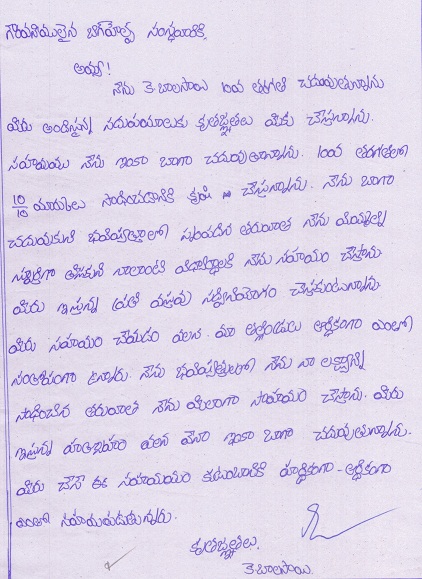 గౌరవనీయులైన బిగ్‌హెల్ప్ సంస్థవారికి,
అయ్యా!
నేను కె.బాలసాయి 10వ తరగతి చదువుతున్నాను
మీరు అందిస్తున్న సదుపయాలకు కృతజ్ఞతలు మీకు చేస్తున్నాను.
సహాయము నేను ఇంకా బాగా చదువుతానాను. 10వ తరగతిలో
10/10 మార్కులు సాధించడానికి కృషి చేస్తున్నాను. నేను బాగా
చదువుకుని భవిష్యత్తులో స్థిరపడిన తరువాత నేను మిమ్మల్ని
స్ఫూర్తిగా తీసుకుని నాలాంటి విద్యార్థులకి నేను సహాయం చేస్తాను
మీరు ఇస్తున్న ప్రతి వస్తువు సద్వినియోగం చేస్తకుంటున్నాను
మీరు సహాయం చేయడం వలన మా తల్లిదండ్రులు ఆర్థికంగా ఎంతో
సంతోషంగా ఉన్నారు. నేను భవిష్యత్తులో నేను నా లక్ష్యాన్ని
సాధించిన తరువాత నేను మీలాగా సాహాయం చేస్తాను. మీరు
ఇస్తున్న ప్రోత్సాహం వలన మేము ఇంకా బాగా చదువుతున్నాను.
మీరు చేసే ఈ సహాయయం కుటుంబానికి హార్ధికంగా - ఆర్థికంగా
ఎంతో సహాయపడుతున్నారు.
కృతజ్ఞతలు.
కె.బాలసాయి.